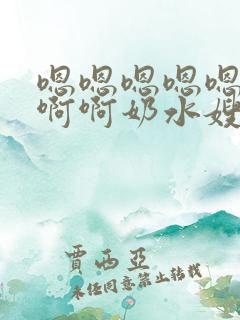 嗯嗯嗯嗯嗯
啊啊奶水嫂
贾西亚
未经同意禁止转载